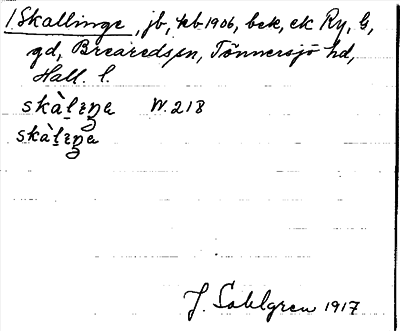 1. Skallinge, jb, kb 1906, bek, ek Ry, G,
gd, Breareds sn, Tönnersjö hd,
Hall. l.
skàlıŋa W. 218
skàlıŋa
J. Sahlgren 1917